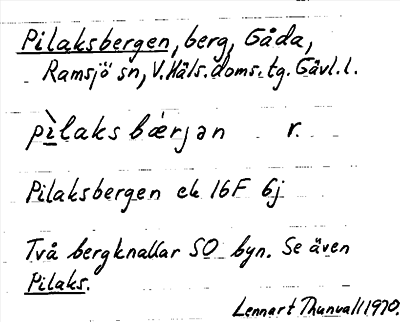 Pilaksbergen, berg, Gåda,
Ramsjö sn, V. Häls. doms. tg. Gävl. l.
pìlaks bærjan r.
Pilaksbergen ek 16F 6j
Två bergknallar SO byn. Se även
Pilaks.
Lennart Thunvall 1970.